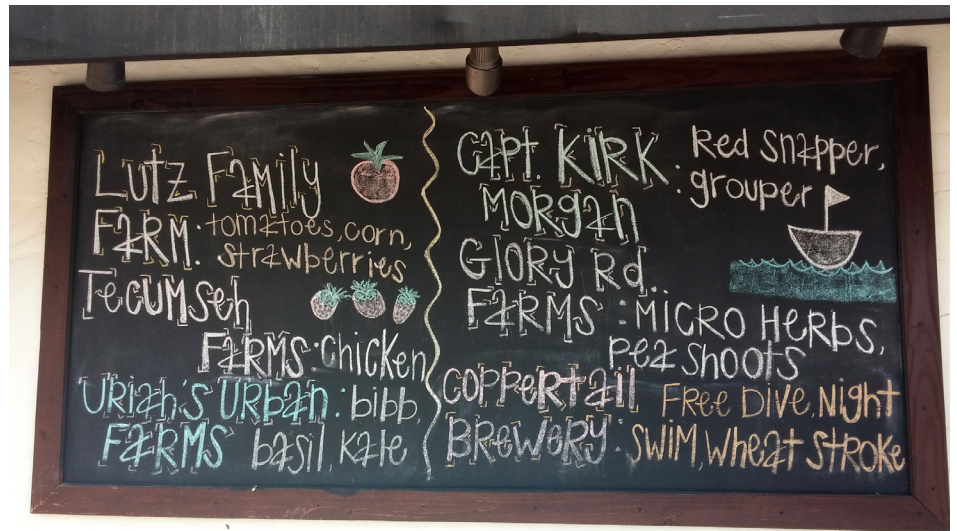 Lutz Family
Farm: tomatoes, corn,
strawberries
Tecumseh
Farms: chicken
Uriah's Urban: bibb,
Farms basil, kale
Capt. Kirk: Red Snapper,
Morgan grouper
Glory Rd.
Farms: Micro Herbs,
pea shoots
Coppertail Free Dive, Night
Brewery: Swim, Wheat Stroke